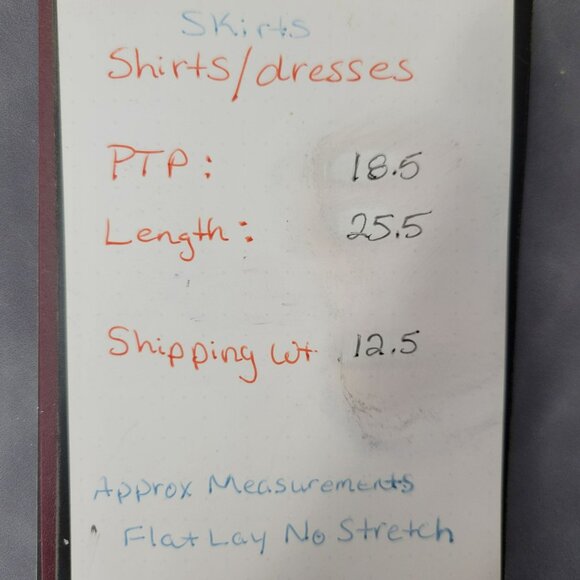 Skirts
Shirts/dresses
PTP: 18.5
Length: 25.5
Shipping wt 12.5
Approx Measurements
Flat Lay No Stretch